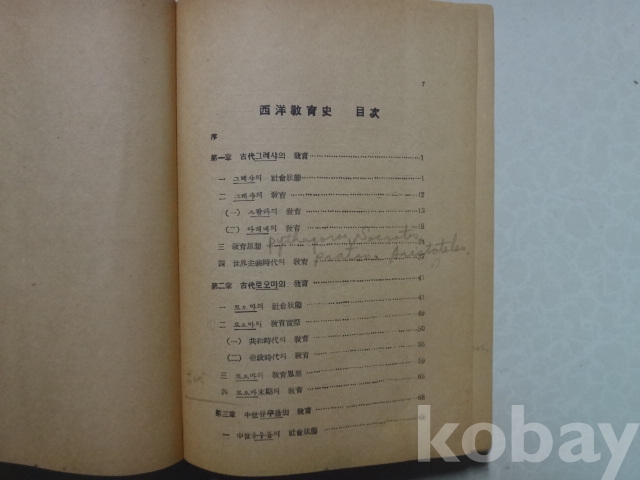 7
西洋敎育史 目次
序
第一章 古代그레샤의 敎育 1
一 그레샤의 社會狀態 1
二 그레샤의 敎育 12
(一) 스팔타의 敎育 13
(二) 아테네의 敎育
三 敎育思想 pythagoras Socrates
四 世界主義時代의 敎育 Aristoteles
第二章 古代로오마의 敎育 41
一 로오마의 社會狀態 41
二 로오마의 敎育實際 49
(一) 共和時代의 敎育 50
(二) 帝政時代의 敎育 55
三 로오마의 敎育思想 59
四 로오마末期의 敎育 65
第三章 中世유우롭의 敎育 68
一 中世유우롭의 社會狀態
kobay